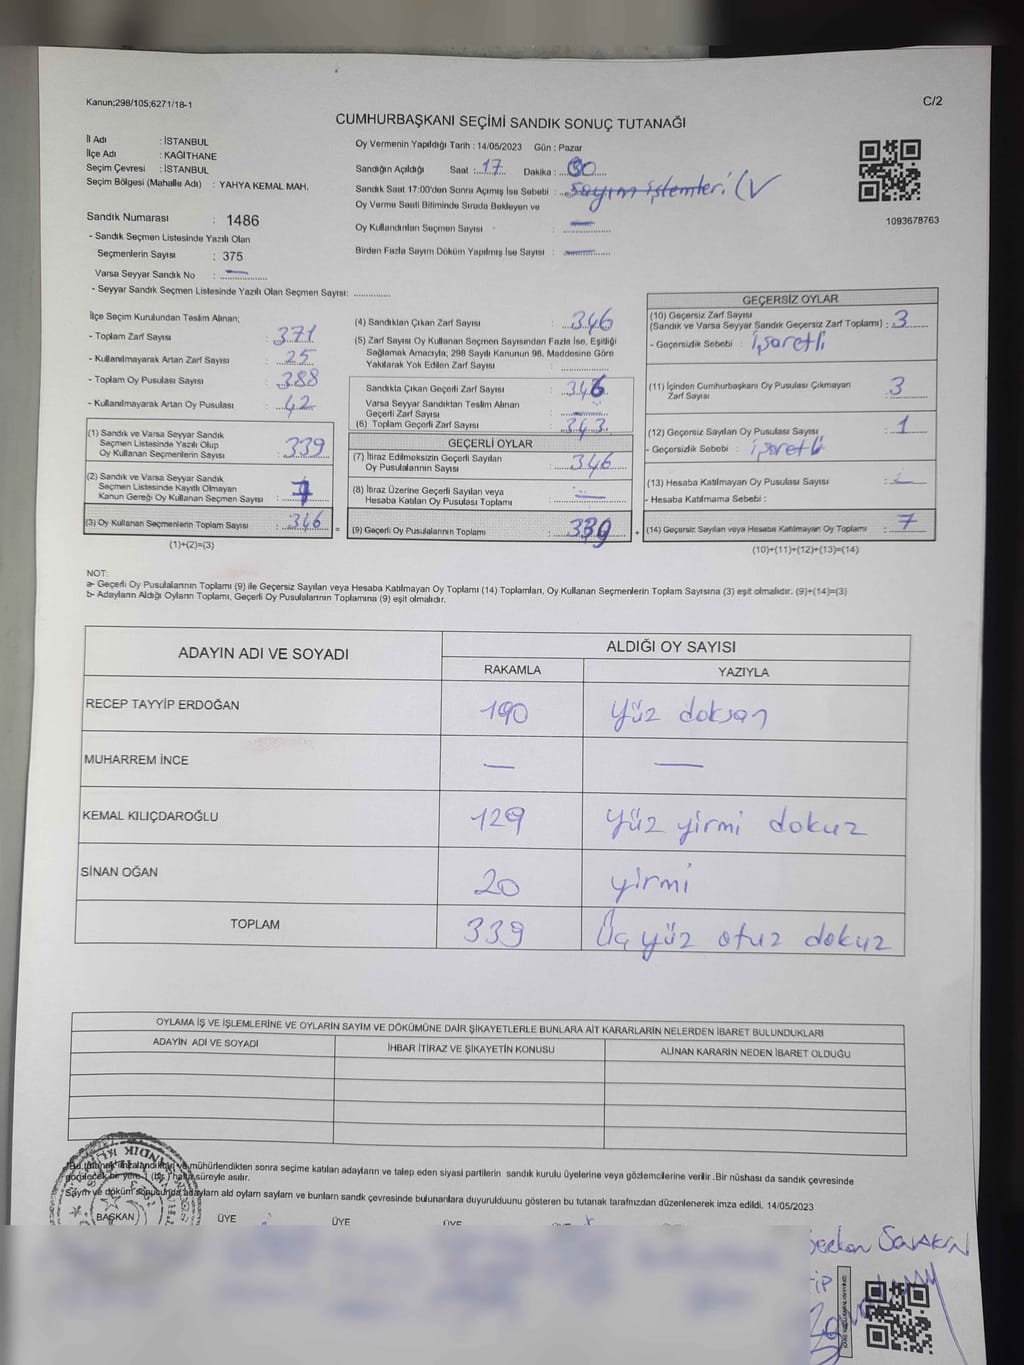 Kanun;298/105;6271/18-1
C/2
CUMHURBAŞKANI SEÇİMİ SANDIK SONUÇ TUTANAĞI
İl Adı : İSTANBUL
İlçe Adı : KAĞITHANE
Seçim Çevresi : İSTANBUL
Seçim Bölgesi (Mahalle Adı) : YAHYA KEMAL MAH.
Sandık Numarası : 1486
- Sandık Seçmen Listesinde Yazılı Olan
Seçmenlerin Sayısı : 375
Varsa Seyyar Sandık No : —
- Seyyar Sandık Seçmen Listesinde Yazılı Olan Seçmen Sayısı: ..............
Oy Vermenin Yapıldığı Tarih : 14/05/2023 Gün : Pazar
Sandığın Açıldığı Saat : 17 Dakika : 30
Sandık Saat 17:00'den Sonra Açmış İse Sebebi : Sayım işlemleri
Oy Verme Saati Bitiminde Sırada Bekleyen ve
Oy Kullandırılan Seçmen Sayısı : —
Birden Fazla Sayım Döküm Yapılmış İse Sayısı : —
1093678763
İlçe Seçim Kurulundan Teslim Alınan;
- Toplam Zarf Sayısı : 371
- Kullanılmayarak Artan Zarf Sayısı : 25
- Toplam Oy Pusulası Sayısı : 388
- Kullanılmayarak Artan Oy Pusulası : 42
(1) Sandık ve Varsa Seyyar Sandık
Seçmen Listesinde Yazılı Olup
Oy Kullanan Seçmenlerin Sayısı : 339
(2) Sandık ve Varsa Seyyar Sandık
Seçmen Listesinde Kayıtlı Olmayan
Kanun Gereği Oy Kullanan Seçmen Sayısı : 7
(3) Oy Kullanan Seçmenlerin Toplam Sayısı : 346 =
(1)+(2)=(3)
(4) Sandıktan Çıkan Zarf Sayısı : 346
(5) Zarf Sayısı Oy Kullanan Seçmen Sayısından Fazla İse, Eşitliği
Sağlamak Amacıyla; 298 Sayılı Kanunun 98. Maddesine Göre
Yakılarak Yok Edilen Zarf Sayısı : ..............
Sandıkta Çıkan Geçerli Zarf Sayısı : 346
Varsa Seyyar Sandıktan Teslim Alınan
Geçerli Zarf Sayısı : —
(6) Toplam Geçerli Zarf Sayısı : 343
GEÇERLİ OYLAR
(7) İtiraz Edilmeksizin Geçerli Sayılan
Oy Pusulalarının Sayısı : 346
(8) İtiraz Üzerine Geçerli Sayılan veya
Hesaba Katılan Oy Pusulası Toplamı : —
(9) Geçerli Oy Pusulalarının Toplamı : 339 +
GEÇERSİZ OYLAR
(10) Geçersiz Zarf Sayısı
(Sandık ve Varsa Seyyar Sandık Geçersiz Zarf Toplamı) : 3
- Geçersizlik Sebebi : işaretli
(11) İçinden Cumhurbaşkanı Oy Pusulası Çıkmayan
Zarf Sayısı : 3
(12) Geçersiz Sayılan Oy Pusulası Sayısı : 1
- Geçersizlik Sebebi : işaretli
(13) Hesaba Katılmayan Oy Pusulası Sayısı : —
- Hesaba Katılmama Sebebi :
(14) Geçersiz Sayılan veya Hesaba Katılmayan Oy Toplamı : 7
(10)+(11)+(12)+(13)=(14)
NOT:
a- Geçerli Oy Pusulalarının Toplamı (9) ile Geçersiz Sayılan veya Hesaba Katılmayan Oy Toplamı (14) Toplamları, Oy Kullanan Seçmenlerin Toplam Sayısına (3) eşit olmalıdır. (9)+(14)=(3)
b- Adayların Aldığı Oyların Toplamı, Geçerli Oy Pusulalarının Toplamına (9) eşit olmalıdır.
ADAYIN ADI VE SOYADI
ALDIĞI OY SAYISI
RAKAMLA YAZIYLA
RECEP TAYYİP ERDOĞAN 190 yüz doksan
MUHARREM İNCE — —
KEMAL KILIÇDAROĞLU 129 yüz yirmi dokuz
SİNAN OĞAN 20 yirmi
TOPLAM 339 Üç yüz otuz dokuz
OYLAMA İŞ VE İŞLEMLERİNE VE OYLARIN SAYIM VE DÖKÜMÜNE DAİR ŞİKAYETLERLE BUNLARA AİT KARARLARIN NELERDEN İBARET BULUNDUKLARI
ADAYIN ADI VE SOYADI İHBAR İTİRAZ VE ŞİKAYETİN KONUSU ALINAN KARARIN NEDEN İBARET OLDUĞU
Bu tutanak imzalandıktan ve mühürlendikten sonra seçime katılan adayların ve talep eden siyasi partilerin sandık kurulu üyelerine veya gözlemcilerine verilir. Bir nüshası da sandık çevresinde
görülecek bir yere 1 (bir) hafta süreyle asılır.
Sayım ve döküm sonucunda adayların aldı oyların sayların ve bunların sandık çevresinde bulunanlara duyuruldduunu gösteren bu tutanak tarafımızdan düzenlenerek imza edildi. 14/05/2023
BAŞKAN ÜYE ÜYE ÜYE